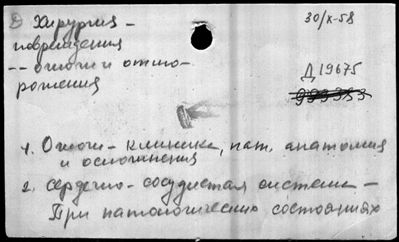 ② Хирургия -
30/X-58
повреждения
-- ожоги и отмо-
Д 19675
рожения
1. Ожоги - клиника, пат. анатомия
и осложнения
2. Сердечно-сосудистая система -
При патологических состояниях